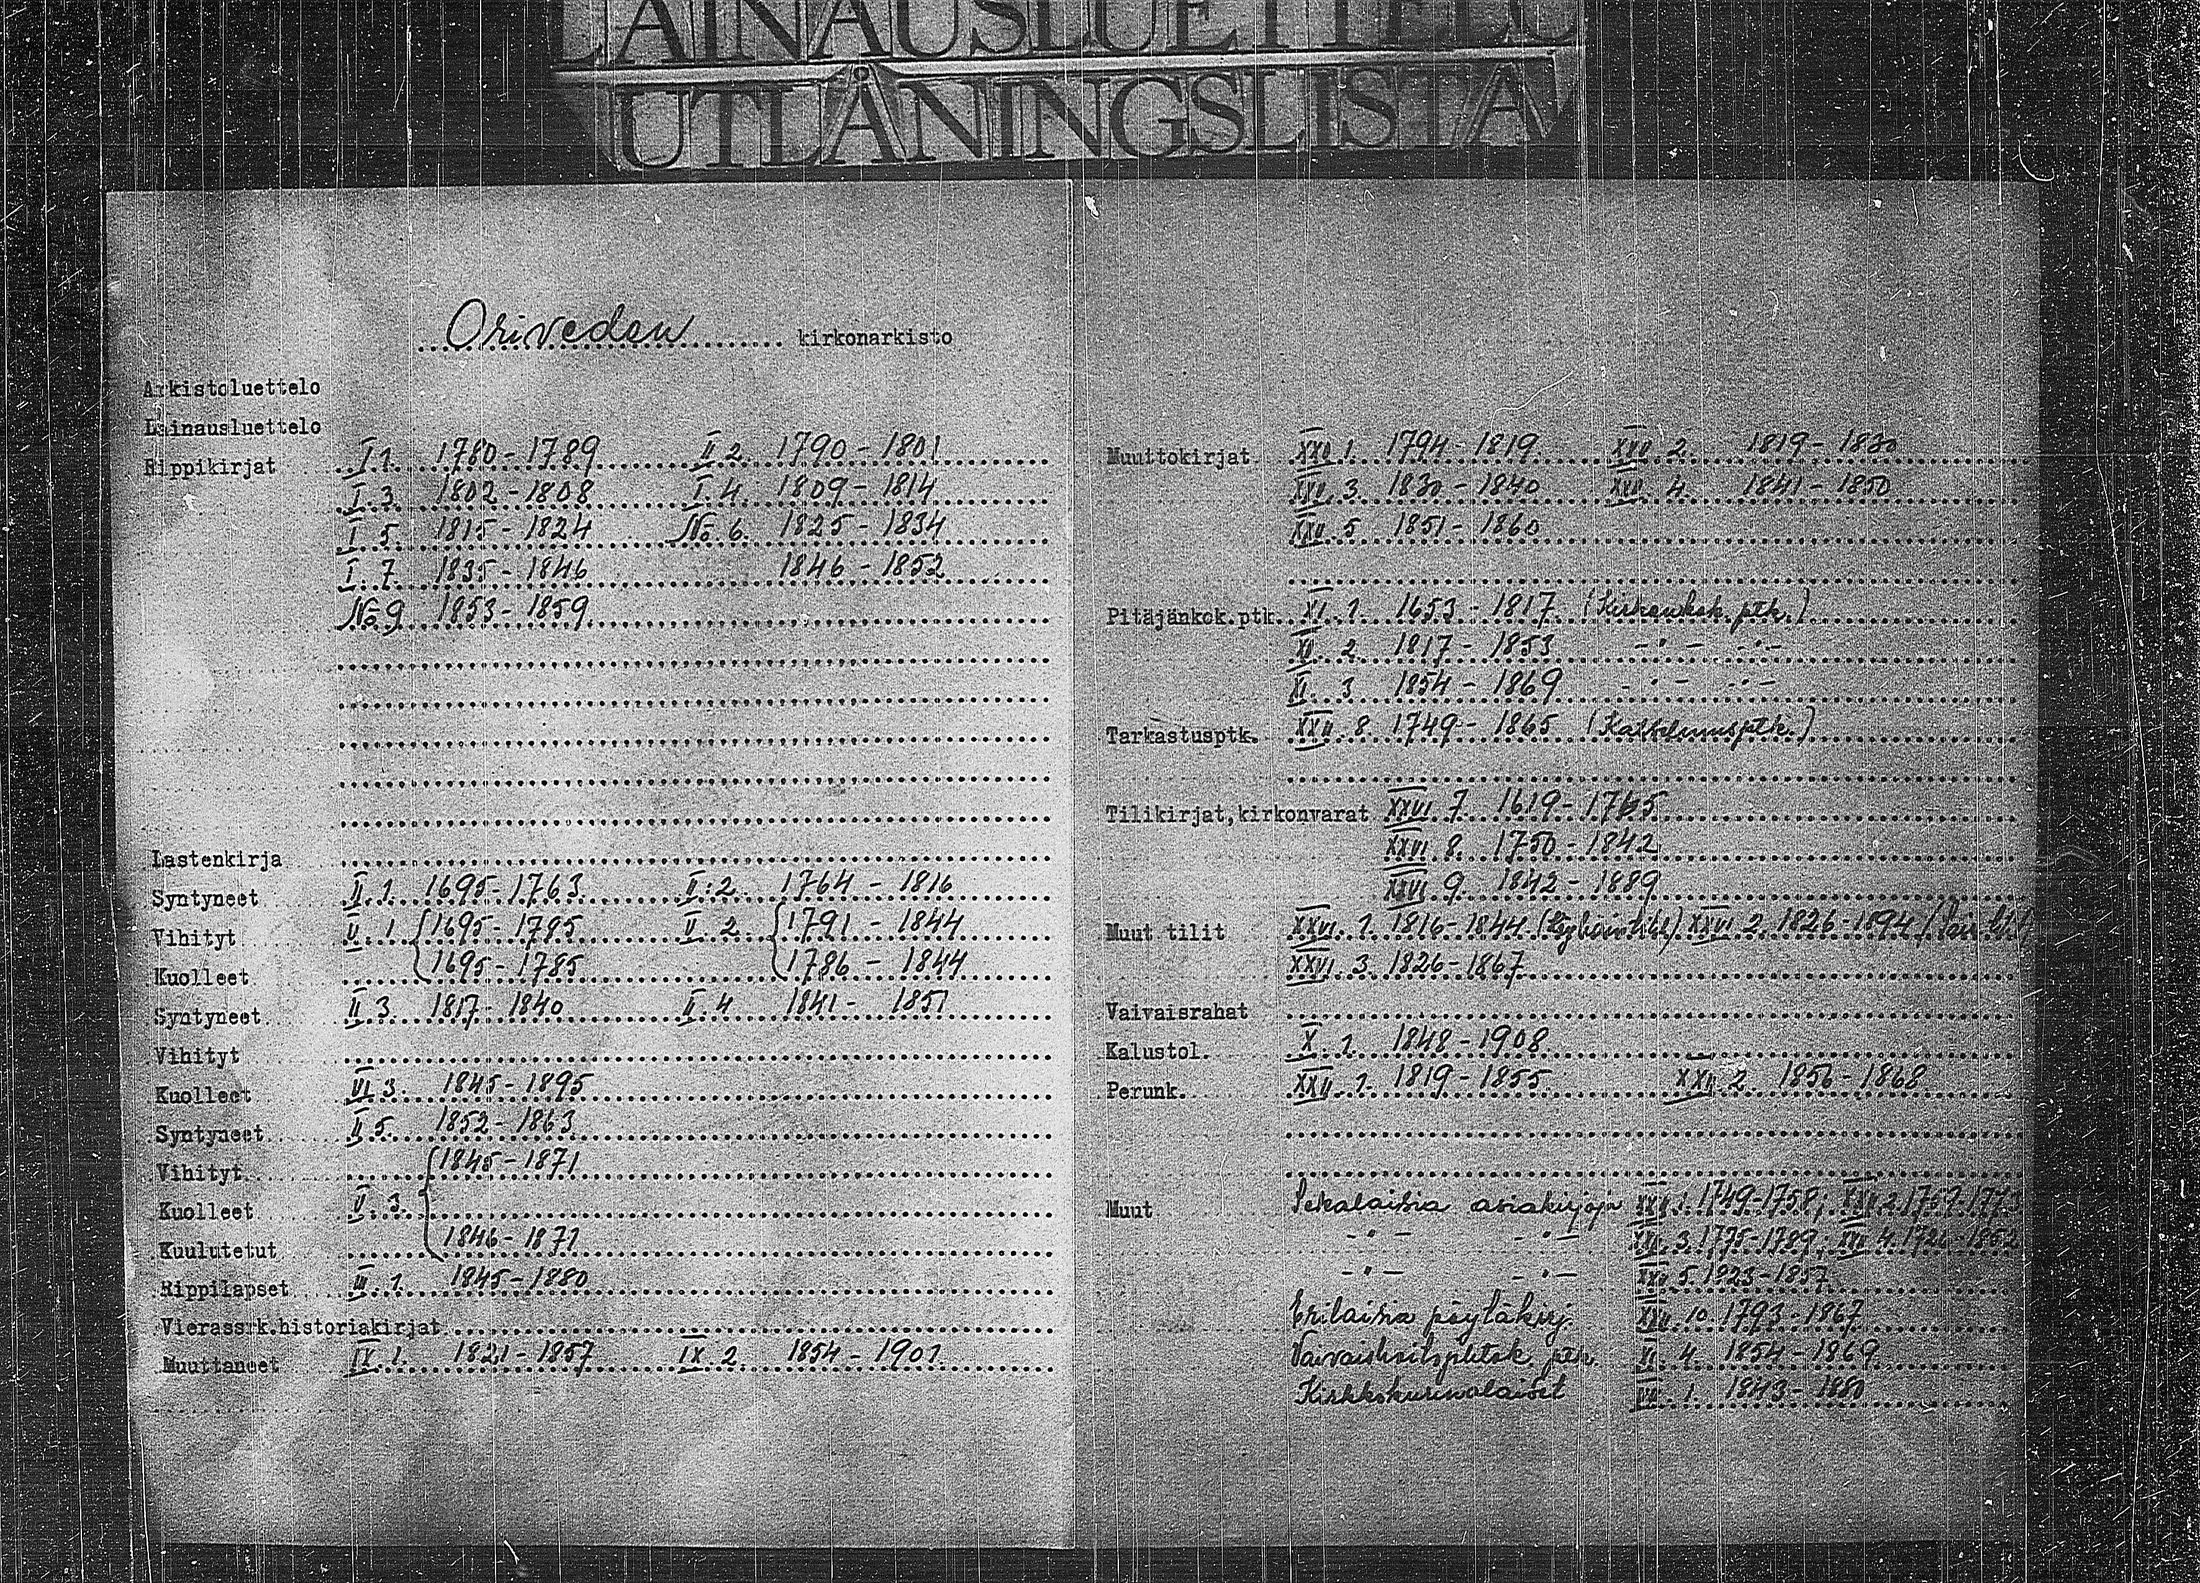 LAINAUSLUETTELO
UTLÅNINGSLISTA
Oriveden kirkonarkisto
Arkistoluettelo
Lainausluettelo
Rippikirjat I.1. 1780-1789 II 2. 1790-1801
I.3. 1802-1808 I.4. 1809-1814
I 5. 1815-1824 No 6. 1825-1834
I.7. 1835-1846 1846-1852
No 9 1853-1859
Lastenkirja
Syntyneet II.1. 1695-1763. II.2. 1764-1816
Vihityt II.1 1695-1785 II.2. 1791-1844
Kuolleet 1695-1785 1786-1844
Syntyneet II 3. 1817-1840 II.4 1841-1851
Vihityt
Kuolleet VI.3. 1845-1895
Syntyneet II 5. 1852-1863
Vihityt 1845-1871
Kuolleet V.3.
Kuulutetut 1846-1871
Rippilapset III.1. 1845-1880
Vierassrk.historiakirjat
Muuttaneet IX.1. 1821-1857 IX.2. 1854-1901
Muuttokirjat XVI.1. 1794-1819 XVI.2. 1819-1830
XVI.3. 1830-1840 XVI.4. 1841-1850
5 1851-1860
Pitäjänkok.ptk. XI.1. 1653-1817 (Kirkonkok.ptk.)
XI.2 1817-1853 -"- -"-
XI.3 1854-1869 -"- -"-
Tarkastusptk. XXII.8. 1749-1865 (Katselmusptk.)
Tilikirjat,kirkonvarat XXVI.7. 1619-1745
XXVI.8. 1750-1842
XXVI.9. 1842-1889
Muut tilit XXVI.1. 1816-1844 XXVI 2. 1826-1894
XXVI.3. 1826-1867
Vaivaisrahat
Kalustol. X.1. 1848-1908
Perunk. XXII.1. 1819-1855 XXII.2. 1856-1868
Muut Sekalaisia asiakirjoja 1. 1749-1758;
-"- -"- 3. 1775-1789; 4.
-"- -"- 5. 1823-1857
Erilaisia pöytäkirj. 10. 1793-1867
ptk. 4. 1854-1869
Kirkkokurinalaiset 1. 1843-1880